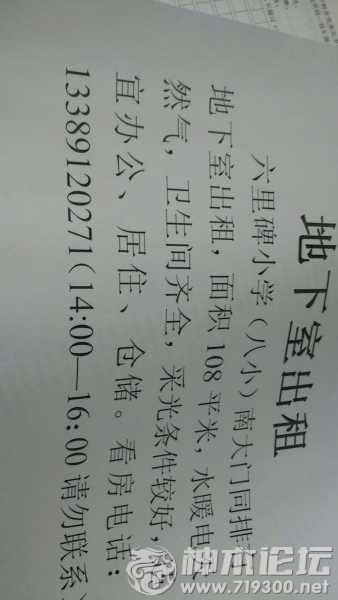 地下室出租
六里碑小学（八小）南大门同排有
地下室出租，面积108平米，水暖电天
然气，卫生间齐全，采光条件较好，适
宜办公、居住、仓储。看房电话：
13389120271(14:00—16:00请勿联系)
神木论坛
www.719300.net